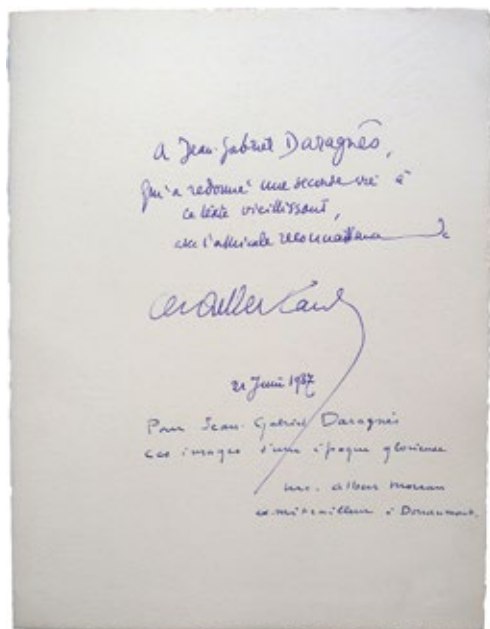 A Jean-Gabriel Daragnès,
qui a redonné une seconde vie à
ce texte vieillissant,
avec l'amicale reconnaissance de
Montherlant
21 Juin 1937
Pour Jean-Gabriel Daragnès
ces images d'une époque glorieuse
Luc. Albert Moreau
ex-mitrailleur à Douaumont.